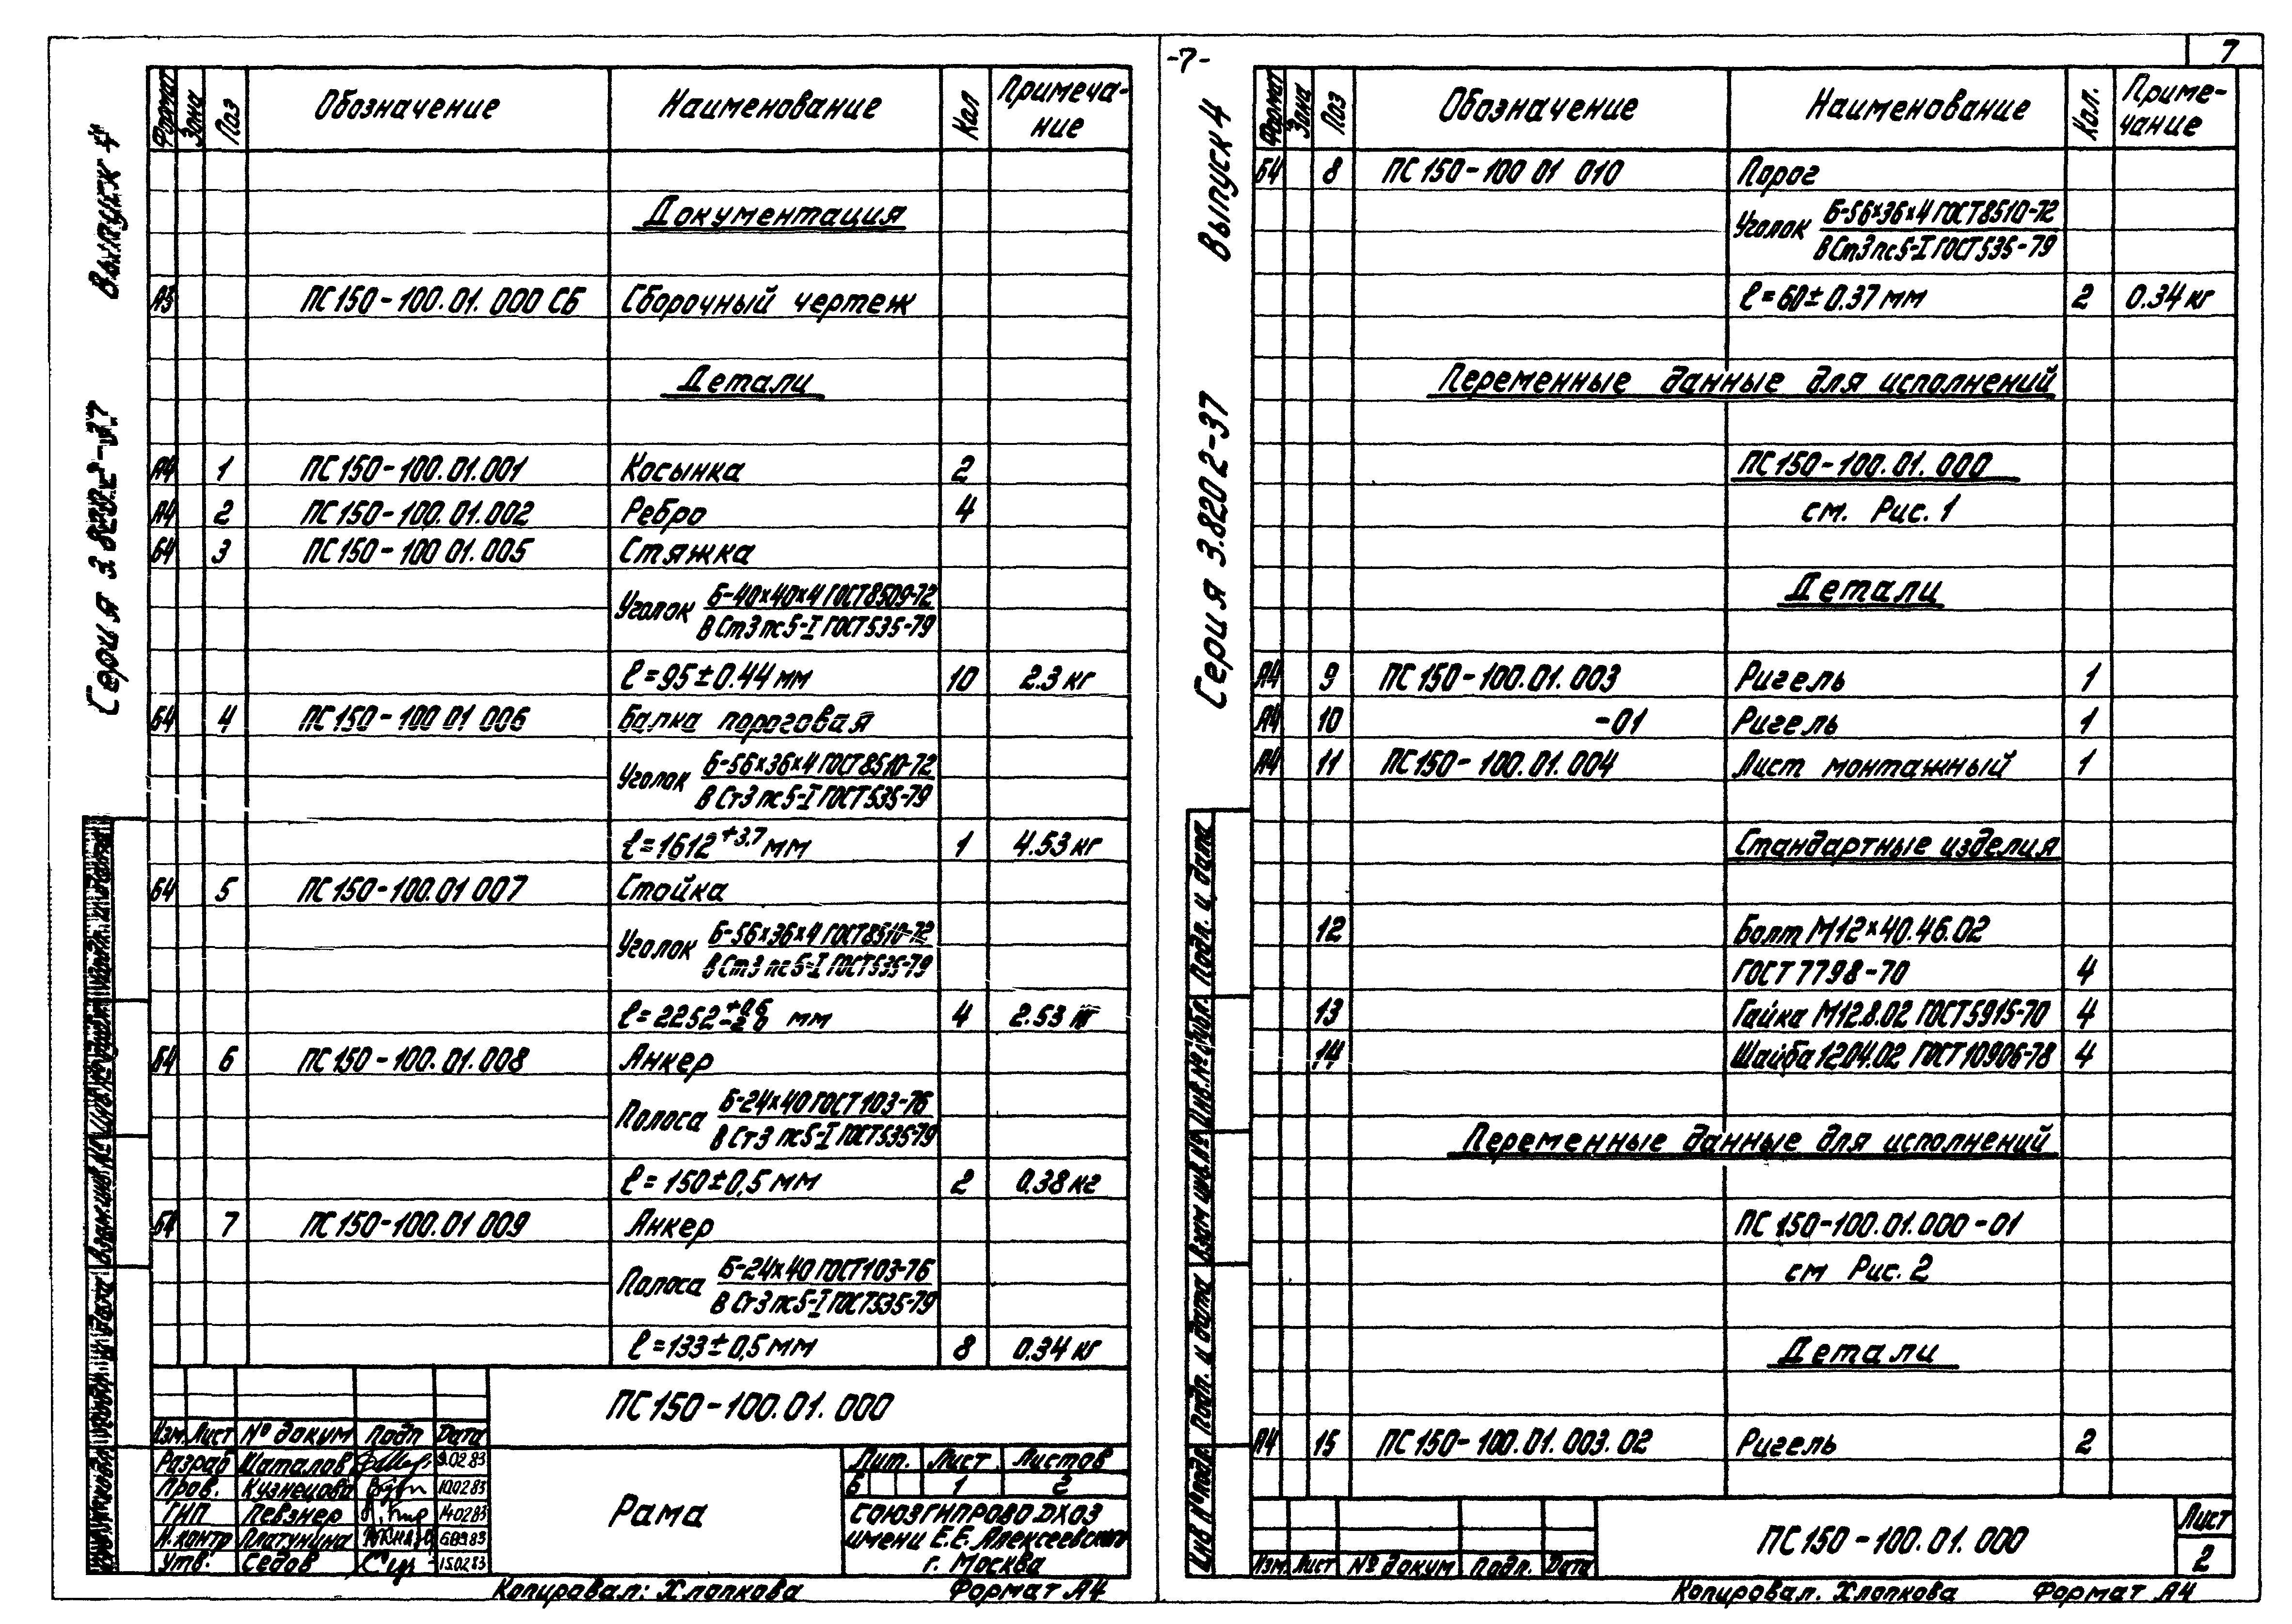 -7-
7
Серия 3.820.2-37 Выпуск 4
Формат Зона Поз Обозначение Наименование Кол Примеча-
ние
Документация
А3 ПС150-100.01.000 СБ Сборочный чертеж
Детали
А4 1 ПС150-100.01.001 Косынка 2
А4 2 ПС150-100.01.002 Ребро 4
Б4 3 ПС150-100 01.005 Стяжка
Уголок Б-40×40×4 ГОСТ8509-72
В Ст3 пс5-I ГОСТ535-79
ℓ=95±0.44 мм 10 2.3 кг
Б4 4 ПС150-100 01 006 Балка пороговая
Уголок Б-56×36×4 ГОСТ8510-72
В Ст3 пс5-I ГОСТ535-79
ℓ=1612 +3.7 мм 1 4.53 кг
Б4 5 ПС150-100.01 007 Стойка
Уголок Б-56×36×4 ГОСТ8510-72
В Ст3 пс5-I ГОСТ535-79
ℓ=2252 мм 4 2.53 кг
Б4 6 ПС150-100.01.008 Анкер
Полоса Б-24×40 ГОСТ103-76
В Ст3 пс5-I ГОСТ535-79
ℓ=150±0,5 мм 2 0.38 кг
Б4 7 ПС150-100.01 009 Анкер
Полоса Б-24×40 ГОСТ103-76
В Ст3 пс5-I ГОСТ535-79
ℓ=133±0,5 мм 8 0.34 кг
ПС150-100.01.000
Изм Лист № докум Подп Дата
Разраб Шаталов 9.02.83
Пров. Кузнецова 10.02.83
ГИП Певзнер 14.02.83
Н.контр Платунина
Утв. Седов 15.02.83
Рама
Лит. Лист Листов
Б 1 2
СОЮЗГИПРОВОДХОЗ
имени Е.Е. Алексеевского
г. Москва
Копировал: Хлопкова Формат А4
Серия 3.820 2-37 Выпуск 4
Формат Зона Поз Обозначение Наименование Кол. Приме-
чание
Б4 8 ПС150-100 01 010 Порог
Уголок Б-56×36×4 ГОСТ8510-72
В Ст3 пс5-I ГОСТ535-79
ℓ=60±0.37 мм 2 0.34 кг
Переменные данные для исполнений
ПС150-100.01.000
см. Рис. 1
Детали
А4 9 ПС150-100.01.003 Ригель 1
А4 10 -01 Ригель 1
А4 11 ПС150-100.01.004 Лист монтажный 1
Стандартные изделия
12 Болт М12×40.46.02
ГОСТ 7798-70 4
13 Гайка М12.8.02 ГОСТ5915-70 4
14 Шайба 12.04.02 ГОСТ10906-78 4
Переменные данные для исполнений
ПС 150-100.01.000-01
см Рис. 2
Детали
А4 15 ПС150-100.01.003.02 Ригель 2
Инв № подл. Подп. и дата Взам инв. № Инв. № дубл. Подп. и дата
Изм. Лист № докум Подп. Дата
ПС150-100.01.000
Лист
2
Копировал. Хлопкова Формат А4